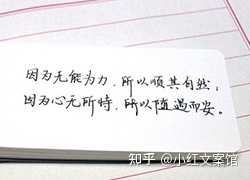 因为无能为力，所以顺其自然，
因为心无所恃，所以随遇而安。
知乎 @小红文案馆